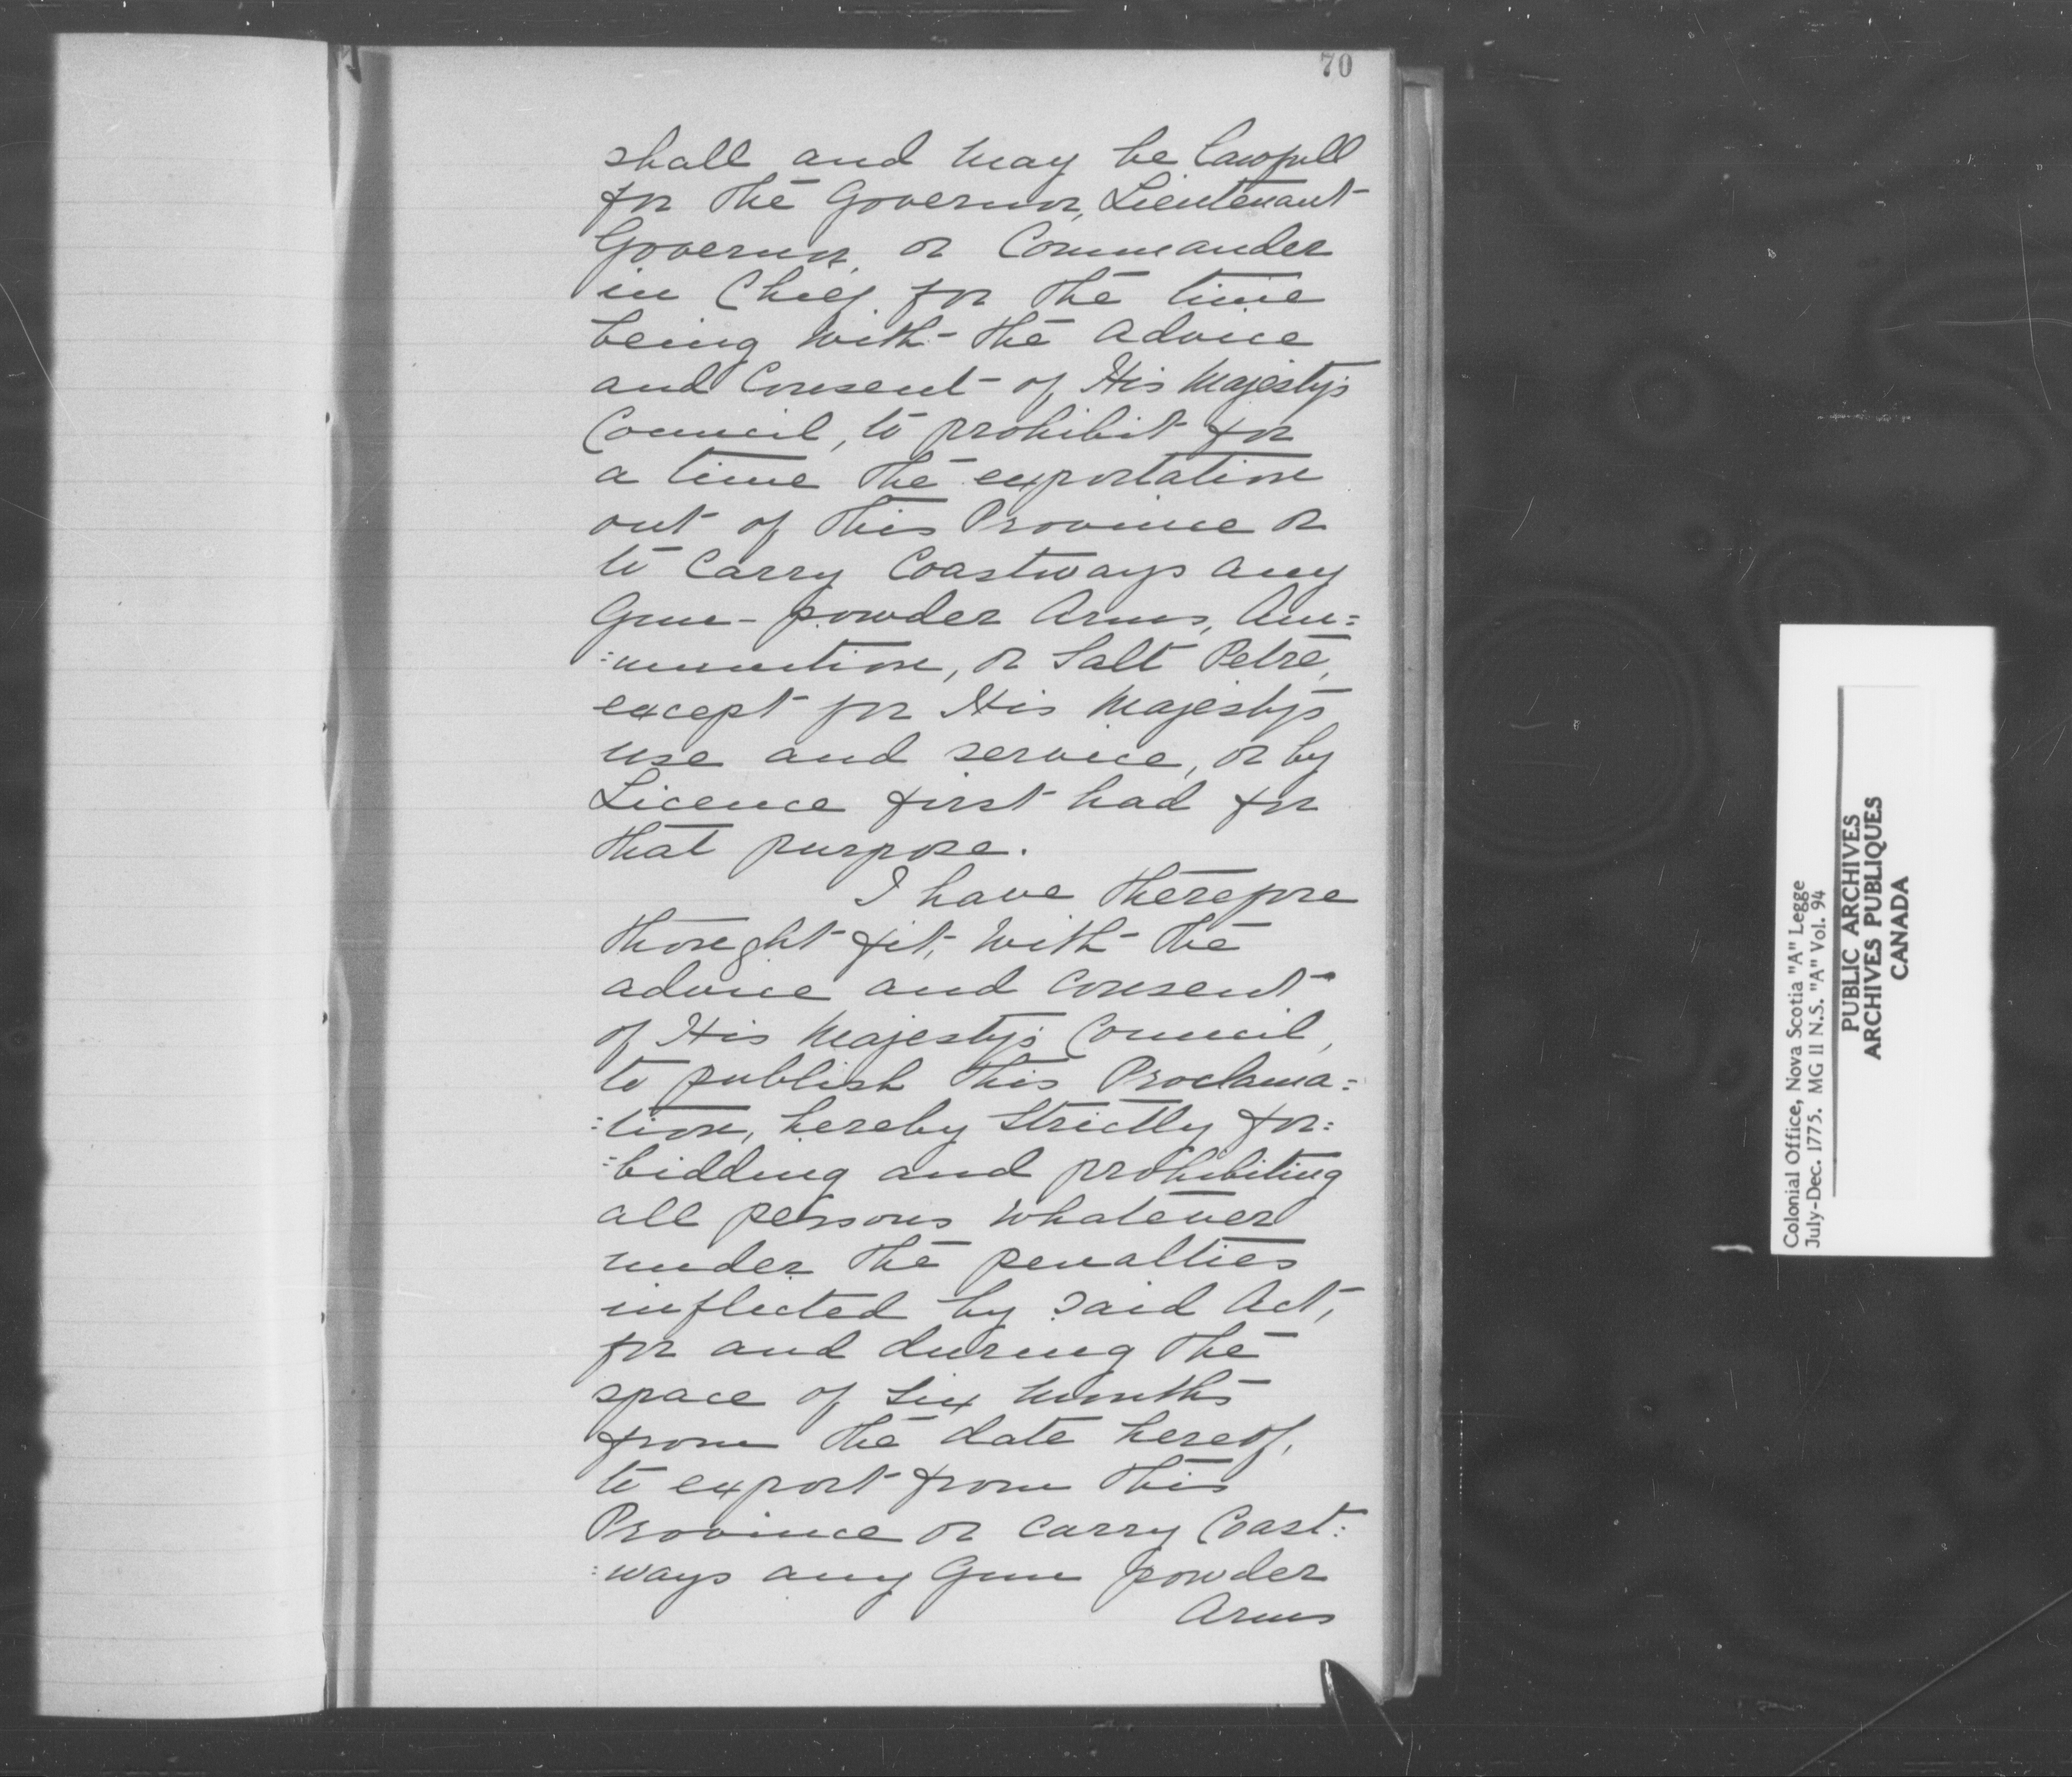 70
shall and may be lawfull
for the Governor, Lieutenant
Governor, or Commander
in Chief for the time
being with the advice
and Consent of His Majesty's
Council, to prohibit for
a time the exportation
out of this Province or
to Carry Coastways any
Gun-powder Arms, Am=
=munition, or Salt Petre,
except for His Majesty's
use and service, or by
Licence first had for
that purpose.
I have therefore
thought fit, with the
advice and consent
of His Majesty's Council,
to publish this Proclama=
=tion, hereby strictly for=
=bidding and prohibiting
all persons whatever
under the penalties
inflicted by said Act,
for and during the
space of six months
from the date hereof,
to export from this
Province or carry Coast=
=ways any Gun powder
Arms
Colonial Office, Nova Scotia "A" Legge
July-Dec. 1775. MG 11 N.S. "A" Vol. 94
PUBLIC ARCHIVES
ARCHIVES PUBLIQUES
CANADA